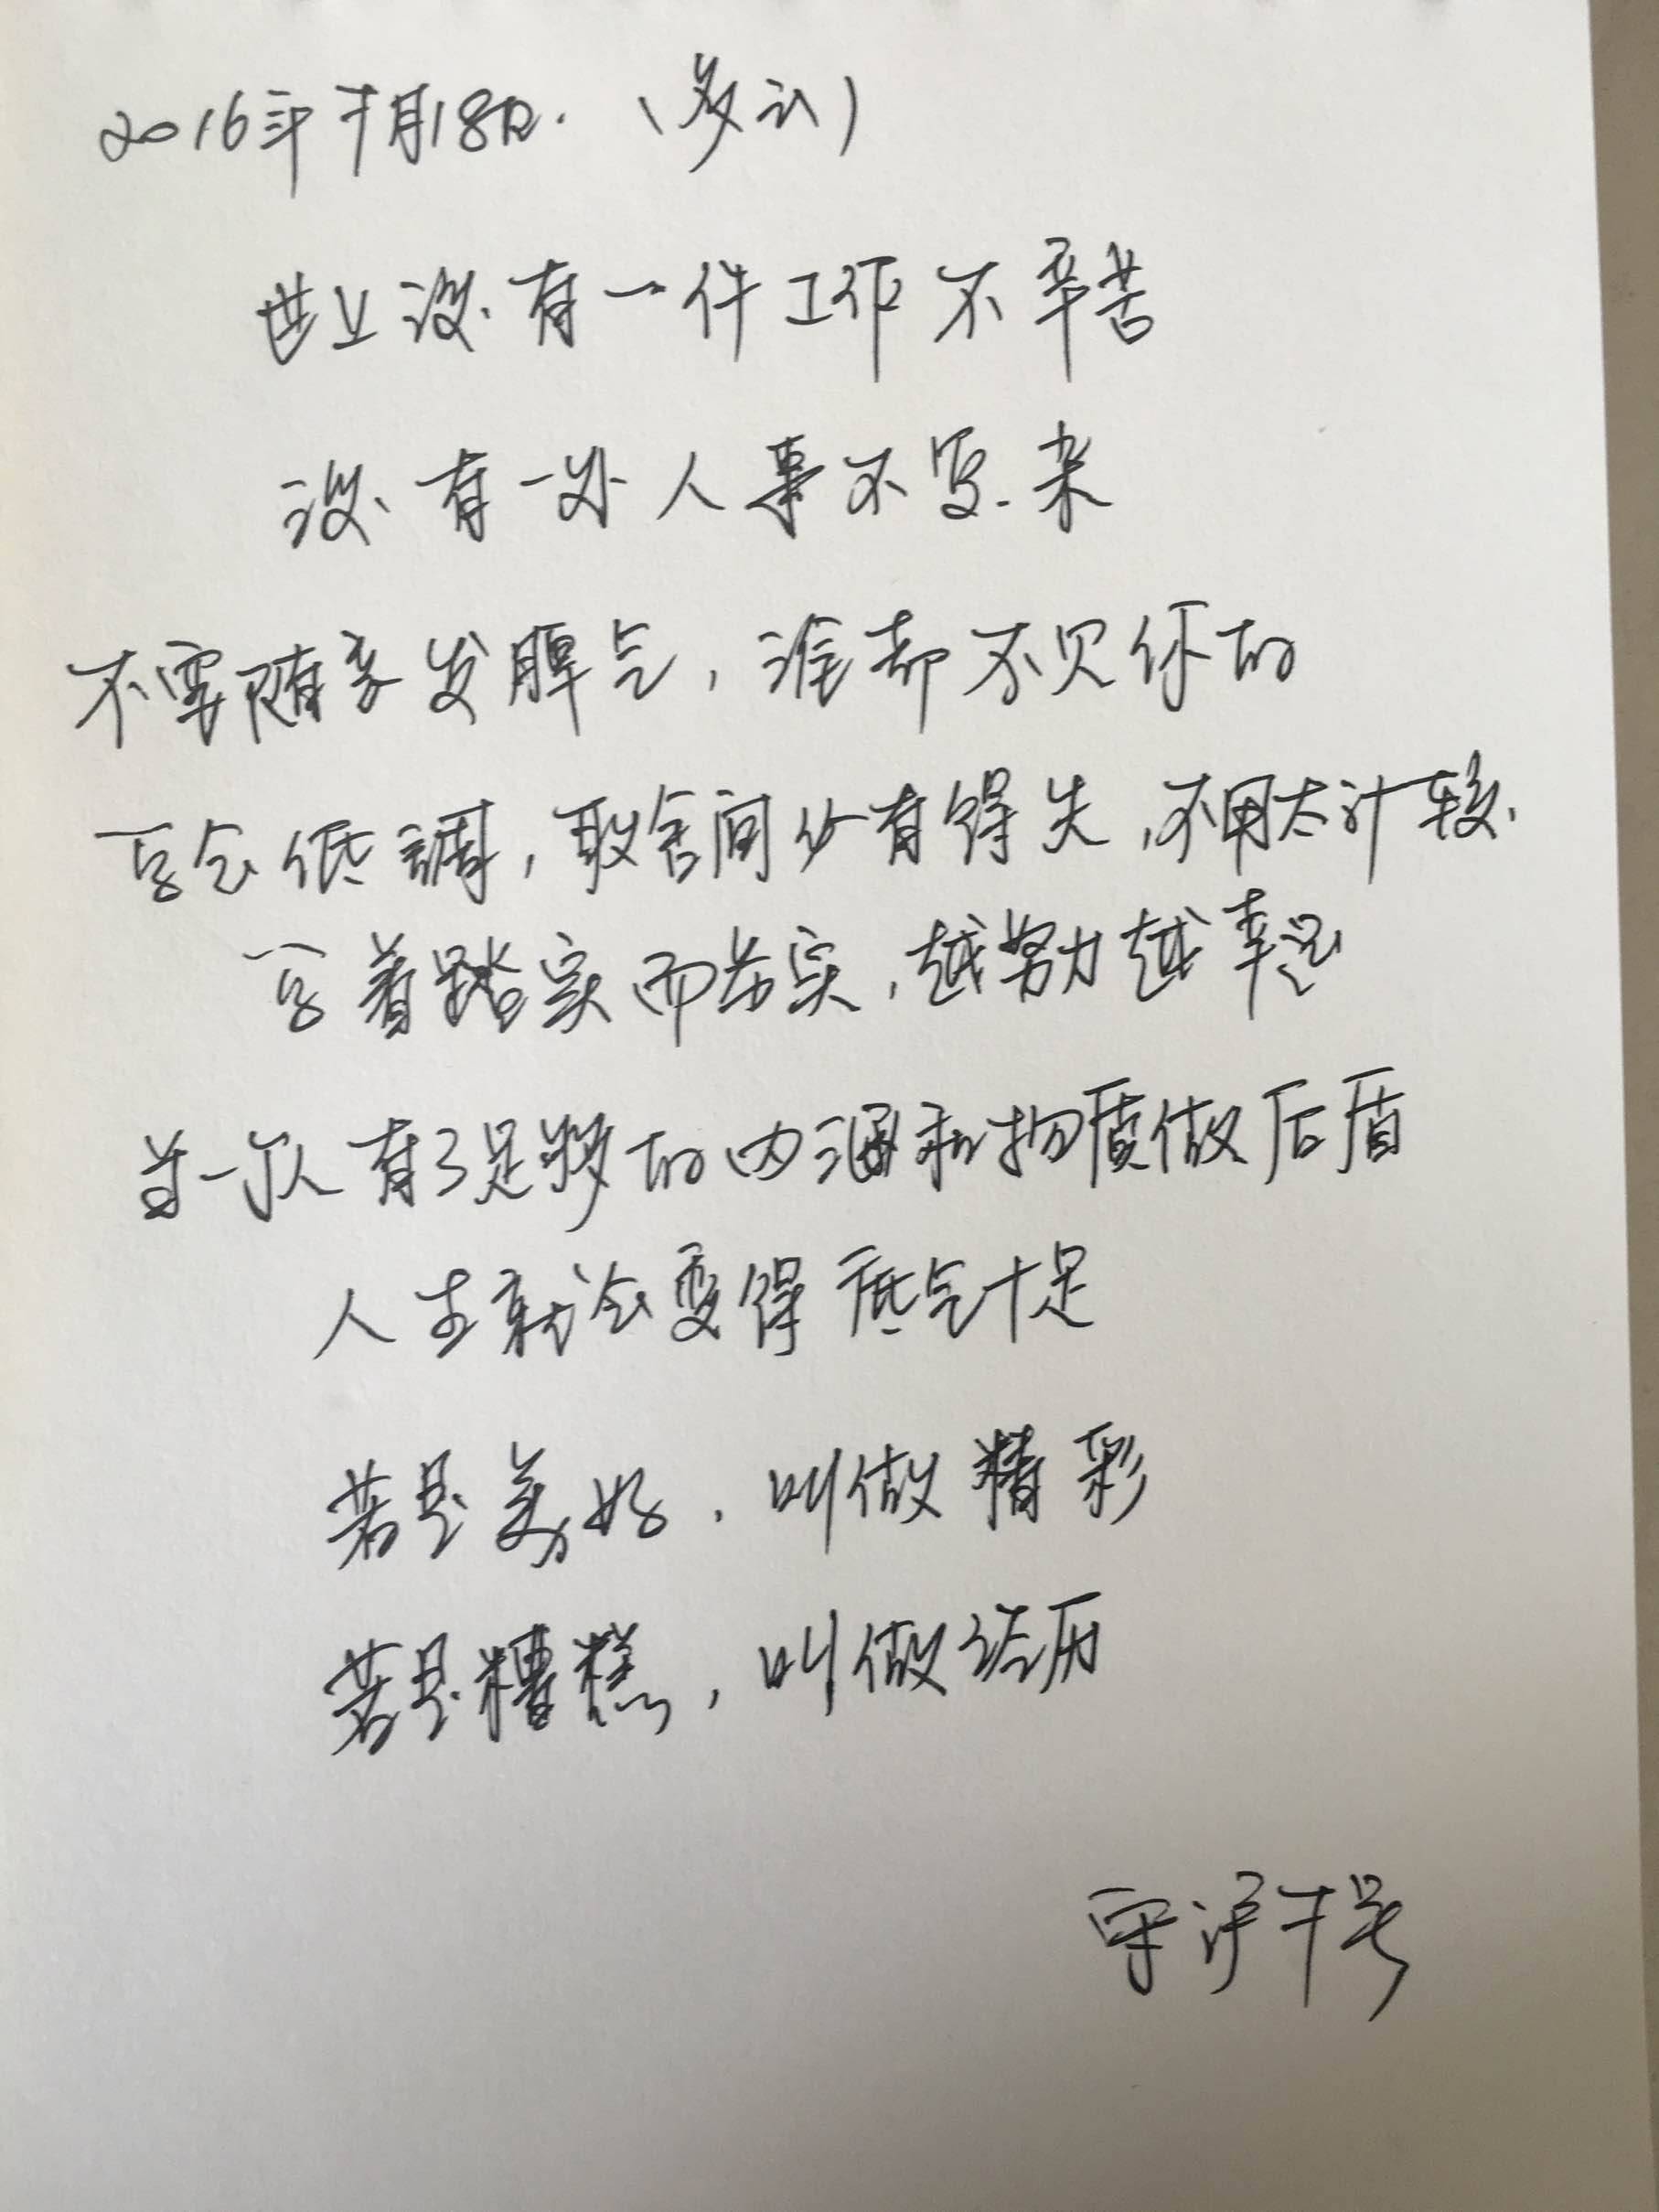 2016年7月18日.(多云)
世上没有一件工作不辛苦
没有一处人事不复杂
不要随意发脾气,谁都不欠你的
学会低调,取舍间必有得失,不用太计较.
学着踏实而务实,越努力越幸运
当一个人有了足够的内涵和物质做后盾
人生就会变得底气十足
若是美好,叫做精彩
若是糟糕,叫做经历
守护